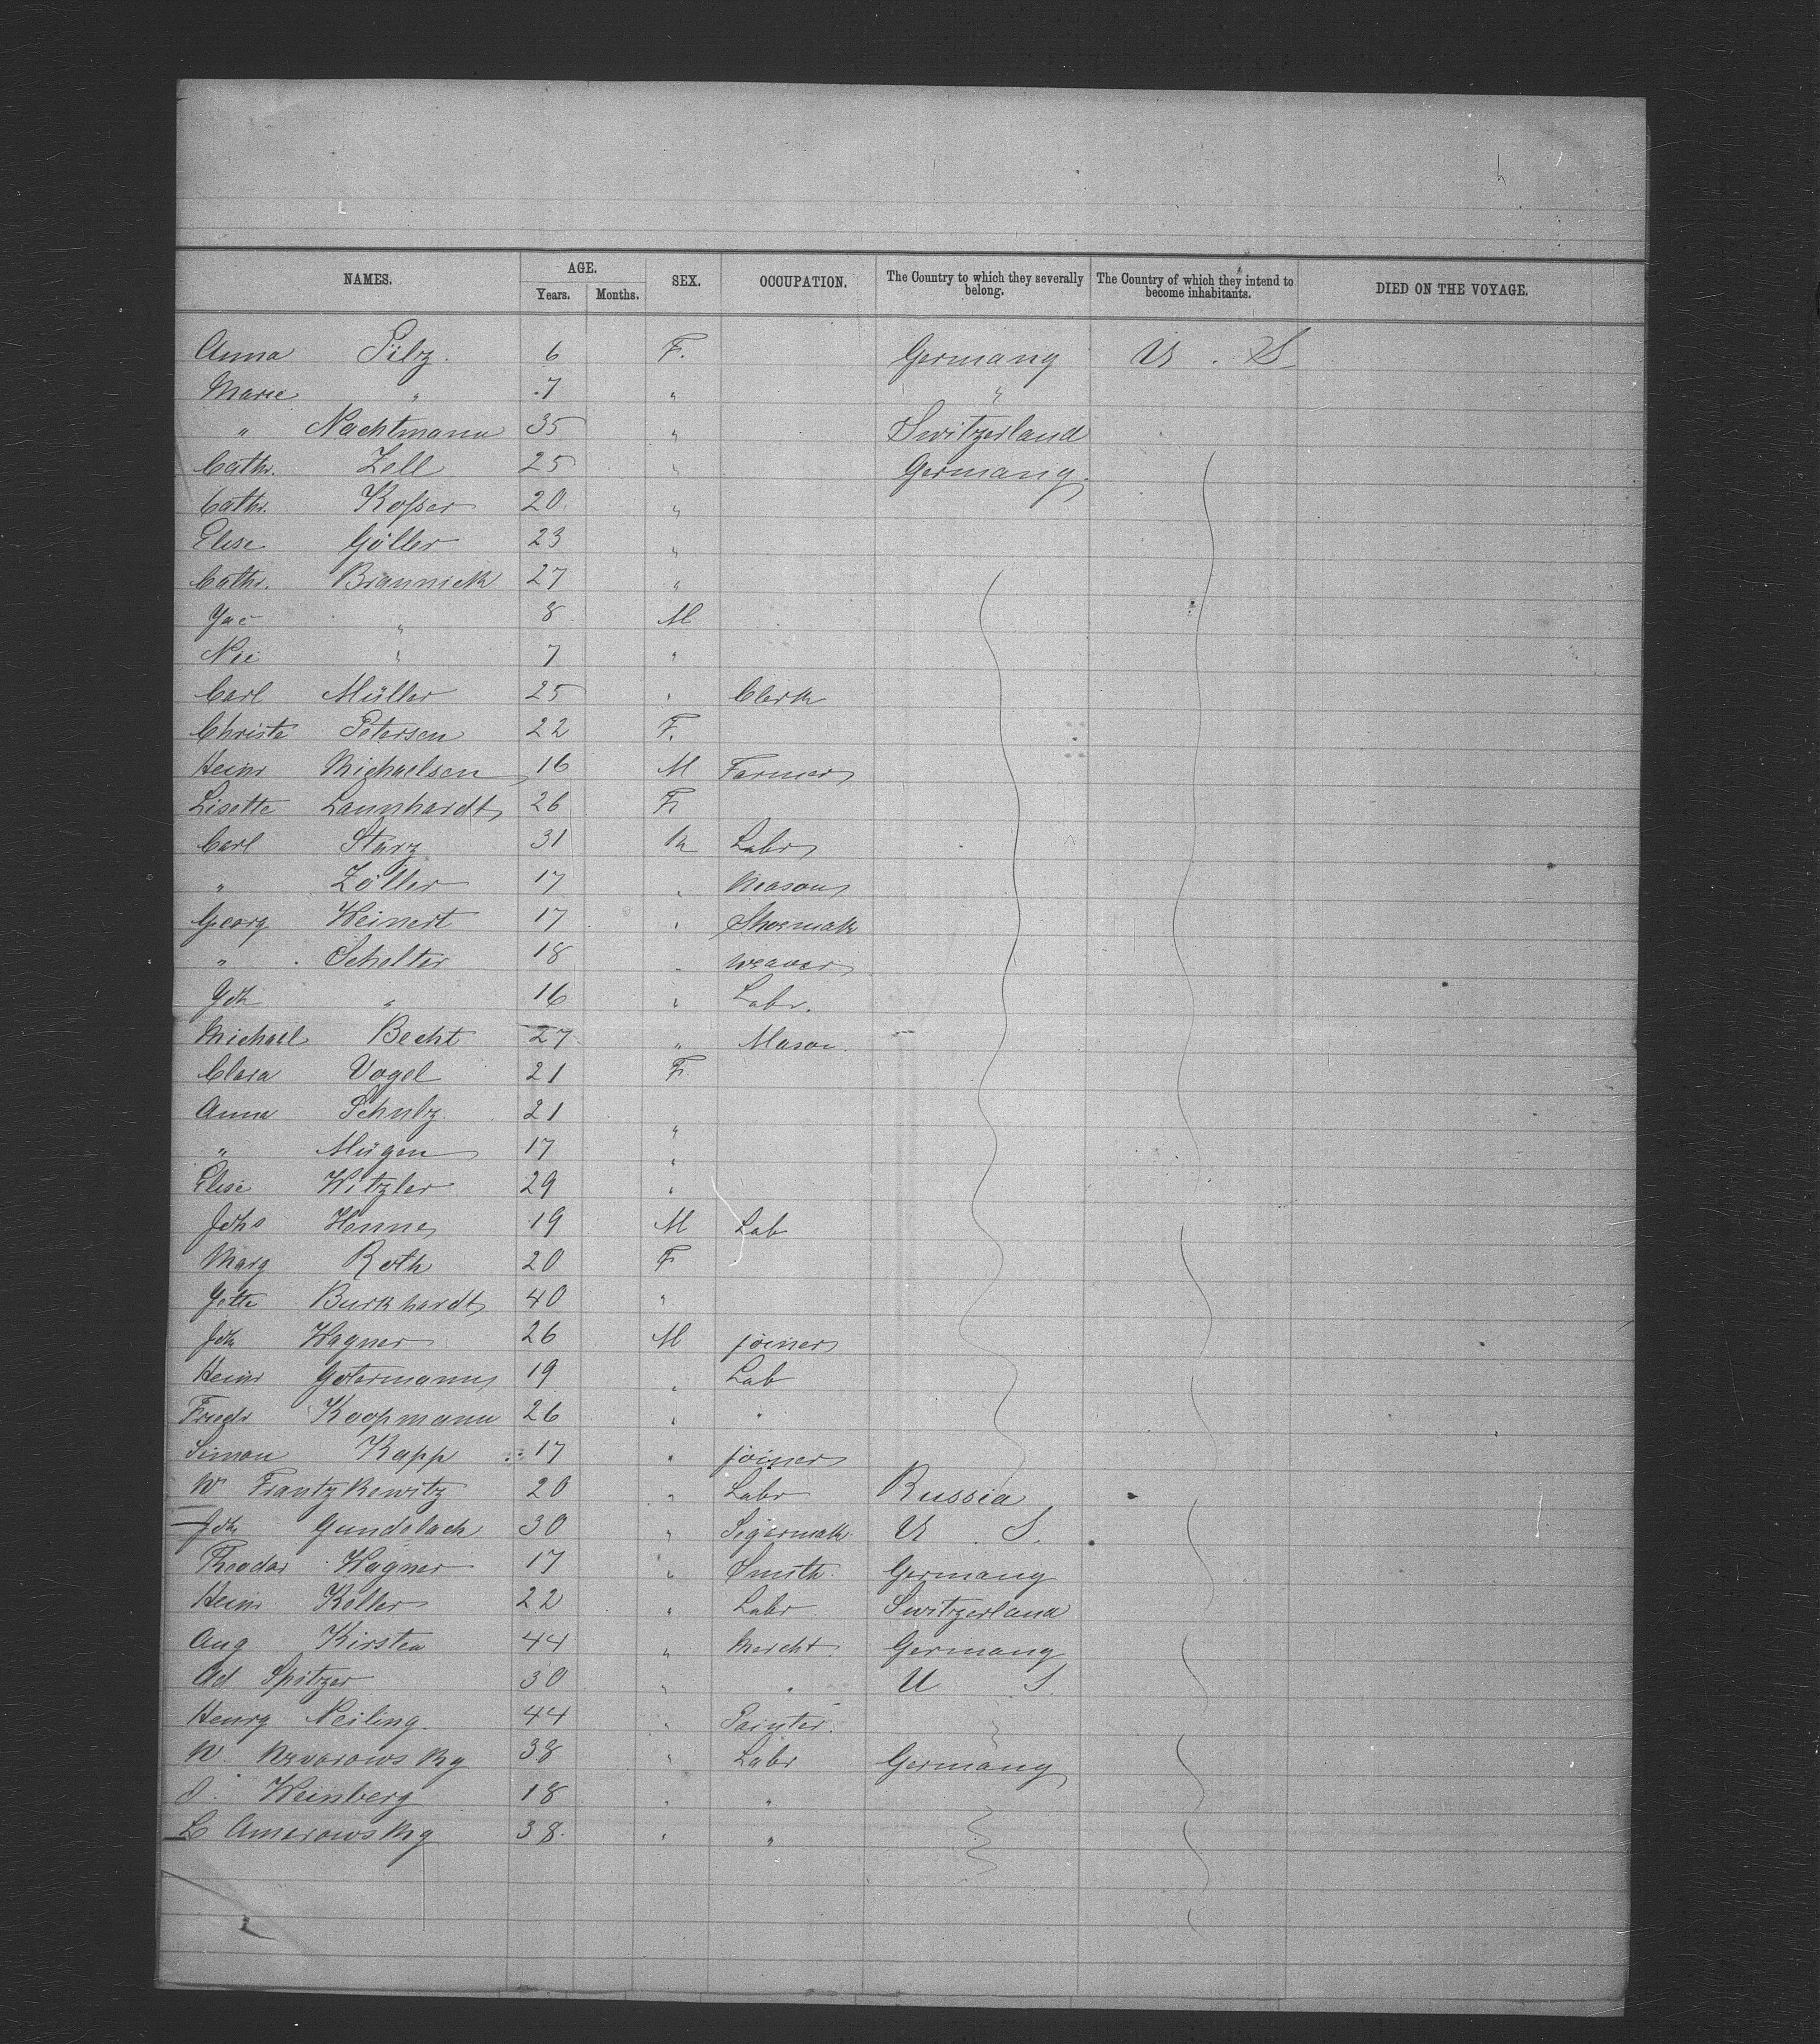 NAMES. AGE. SEX. OCCUPATION. The Country to which they severally belong. The Country of which they intend to become inhabitants. DIED ON THE VOYAGE.
Years. Months.
Anna Pilz. 6 F. Germany U. S.
Marie " 7 " "
" Nachtmann 35 " Switzerland
Cathr. Zell 25 " Germany
Cathr. Koßer 20 "
Elise Göller 23 "
Cathr. Braunick 27 "
Jac " 8 M
Nic " 7 "
Carl Müller 25 " Clerk
Christe Petersen 22 F.
Heinr Michaelsen 16 M Farmer
Lisette Launhardt 26 F
Carl Starz 31 M Labr
" Zöller 17 " Mason
Georg Weinert 17 " Shoemak
" Schelter 18 " weaver
Joh " 16 " Labr.
Michael Becht 27 " Mason.
Clara Vogel 21 F.
Anna Schulz 21 "
" Mügen 17 "
Elise Witzler 29 "
Johs Henne 19 M Lab
Marg Roth 20 F
Jette Burkhardt 40 "
Joh Wagner 26 M joiner
Heinr Gotermann 19 " Lab
Friedr Koopmann 26 " "
Simon Kapp 17 " joiner
W Frantzkewitz 20 " Labr Russia
Joh Gundelach 30 " Segarmak. U S.
Theodor Wagner 17 " Smith. Germany
Heinr Keller 22 " Labr Switzerland
Aug Kirsten 44 " Mercht. Germany
Ad Spitzer 30 " " U S.
Henry Neiling. 44 " Painter.
W. 38 " Labr Germany
Weinberg 18 " "
L Amerowsky 38. " "